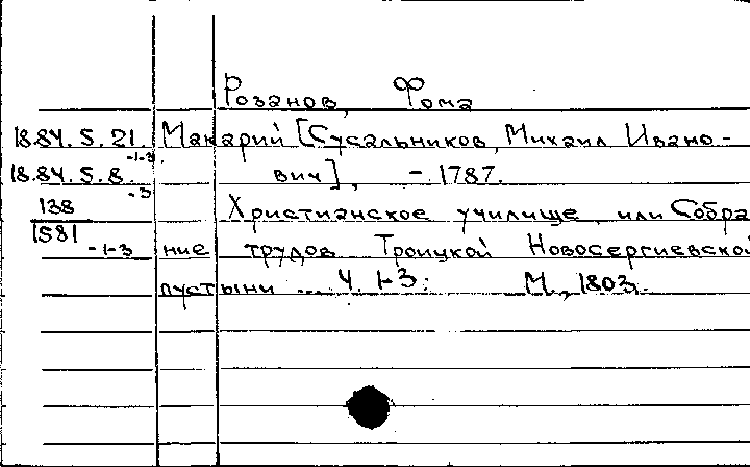 Розанов, Фома
18.84.5.21. Макарий [Сусальников, Михаил Ивано-
-1-3.
18.84.5.8. вич], - 1787.
-3
138 Христианское училище или Собра
1581
-1-3 ние трудов Троицкой Новосергиевской
пустыни ... Ч. 1-3. М., 1803.